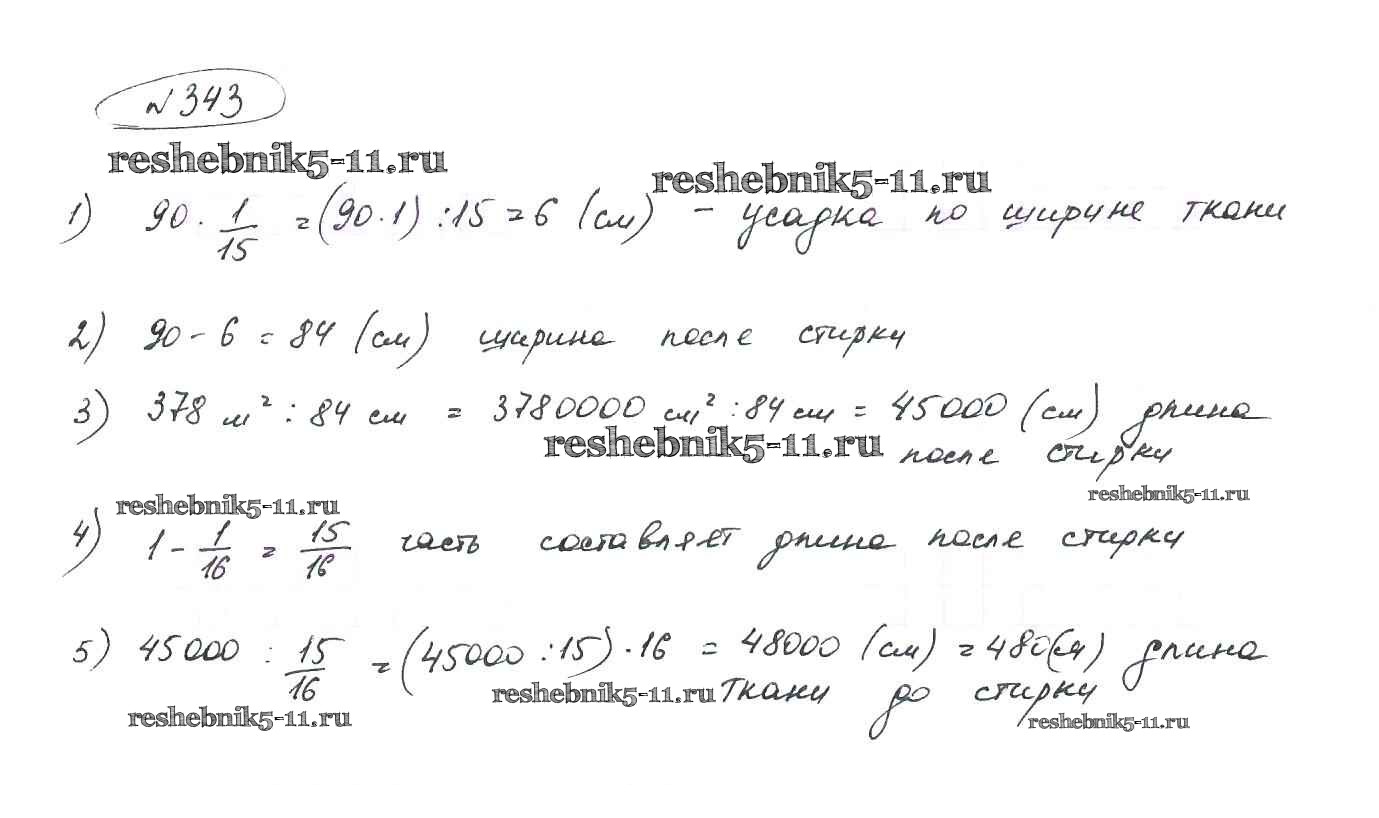 №343
reshebnik5-11.ru
reshebnik5-11.ru
1) 90 · 1/15 = (90·1) :15 = 6 (см) - усадка по ширине ткани
2) 90 - 6 = 84 (см) ширина после стирки
3) 378 м² : 84 см = 3780000 см² : 84 см = 45000 (см) длина
reshebnik5-11.ru
после стирки
reshebnik5-11.ru
reshebnik5-11.ru
4) 1 - 1/16 = 15/16 часть составляет длина после стирки
5) 45000 : 15/16 = (45000 :15) · 16 = 48000 (см) = 480(м) длина
reshebnik5-11.ru
ткани до стирки
reshebnik5-11.ru
reshebnik5-11.ru